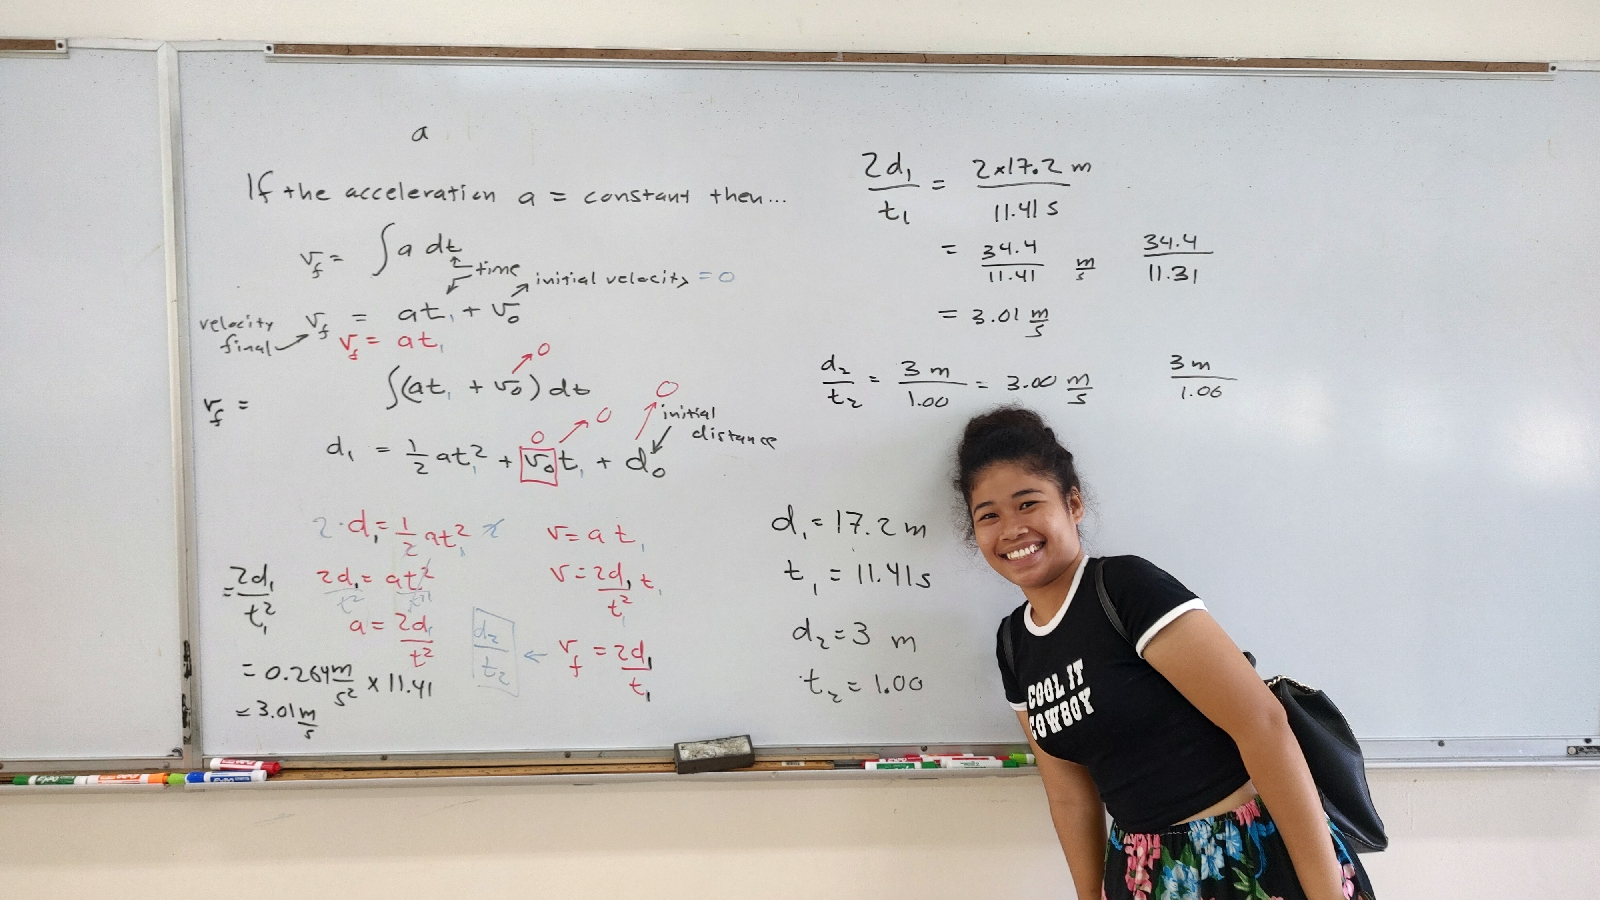 a
If the acceleration a = constant then...
v_f = ∫ a dt
time
initial velocity = 0
velocity final
v_f = at₁ + v₀
v_f = at₁
v_f =
∫(at₁ + v₀) dt
0
0
initial distance
d₁ = ½ at₁² + v₀ t₁ + d₀
0
0
2·d₁ = ½ at₁² 2
2d₁ = at²
t² t²
a = 2d₁/t²
= 2d₁/t₁²
= 0.264 m/s² x 11.41
= 3.01 m/s
v = a t₁
v = 2d₁/t₁² t₁
d₂/t₂ ← v_f = 2d₁/t₁
2d₁/t₁ = 2x17.2 m/11.41 s
= 34.4/11.41 m/s
34.4/11.31
= 3.01 m/s
d₂/t₂ = 3 m/1.00 = 3.00 m/s
3 m/1.06
d₁ = 17.2 m
t₁ = 11.41 s
d₂ = 3 m
t₂ = 1.00
COOL IT
COWBOY